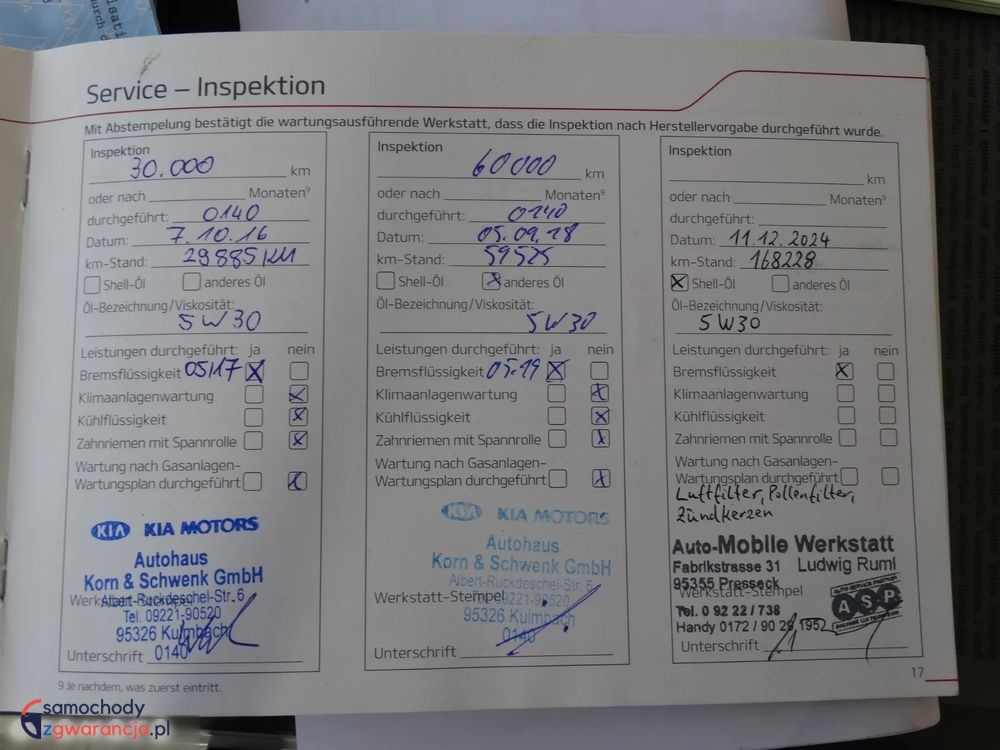 Service – Inspektion
Mit Abstempelung bestätigt die wartungsausführende Werkstatt, dass die Inspektion nach Herstellervorgabe durchgeführt wurde.
Inspektion
30.000 km
oder nach Monaten⁹
durchgeführt: 0140
Datum: 7.10.16
km-Stand: 29885 KM
Shell-Öl anderes Öl
Öl-Bezeichnung/Viskosität:
5W30
Leistungen durchgeführt: ja nein
Bremsflüssigkeit 05/17 X
Klimaanlagenwartung X
Kühlflüssigkeit X
Zahnriemen mit Spannrolle X
Wartung nach Gasanlagen-
Wartungsplan durchgeführt X
KIA KIA MOTORS
Autohaus
Korn & Schwenk GmbH
Albert-Ruckdeschel-Str. 6
Werkstatt-Stempel
Tel. 09221-90520
95326 Kulmbach
0140
Unterschrift
Inspektion
60000 km
oder nach Monaten⁹
durchgeführt: 0140
Datum: 05.09.18
km-Stand: 59525
Shell-Öl X anderes Öl
Öl-Bezeichnung/Viskosität:
5W30
Leistungen durchgeführt: ja nein
Bremsflüssigkeit 05.19 X
Klimaanlagenwartung X
Kühlflüssigkeit X
Zahnriemen mit Spannrolle X
Wartung nach Gasanlagen-
Wartungsplan durchgeführt X
KIA KIA MOTORS
Autohaus
Korn & Schwenk GmbH
Albert-Ruckdeschel-Str. 6
Werkstatt-Stempel
09221-90520
95326 Kulmbach
0140
Unterschrift
Inspektion
km
oder nach Monaten⁹
durchgeführt:
Datum: 11.12.2024
km-Stand: 168228
X Shell-Öl anderes Öl
Öl-Bezeichnung/Viskosität:
5W30
Leistungen durchgeführt: ja nein
Bremsflüssigkeit X
Klimaanlagenwartung
Kühlflüssigkeit
Zahnriemen mit Spannrolle
Wartung nach Gasanlagen-
Wartungsplan durchgeführt
Luftfilter, Pollenfilter,
Zündkerzen
Auto-Mobile Werkstatt
Fabrikstrasse 31 Ludwig Ruml
95355 Presseck
Werkstatt-Stempel
Tel. 0 92 22 / 738
Handy 0172 / 90 29 1952
AUTO SERVICE PARTNER
ASP
Unterschrift
9 Je nachdem, was zuerst eintritt.
17
samochody
zgwarancja.pl